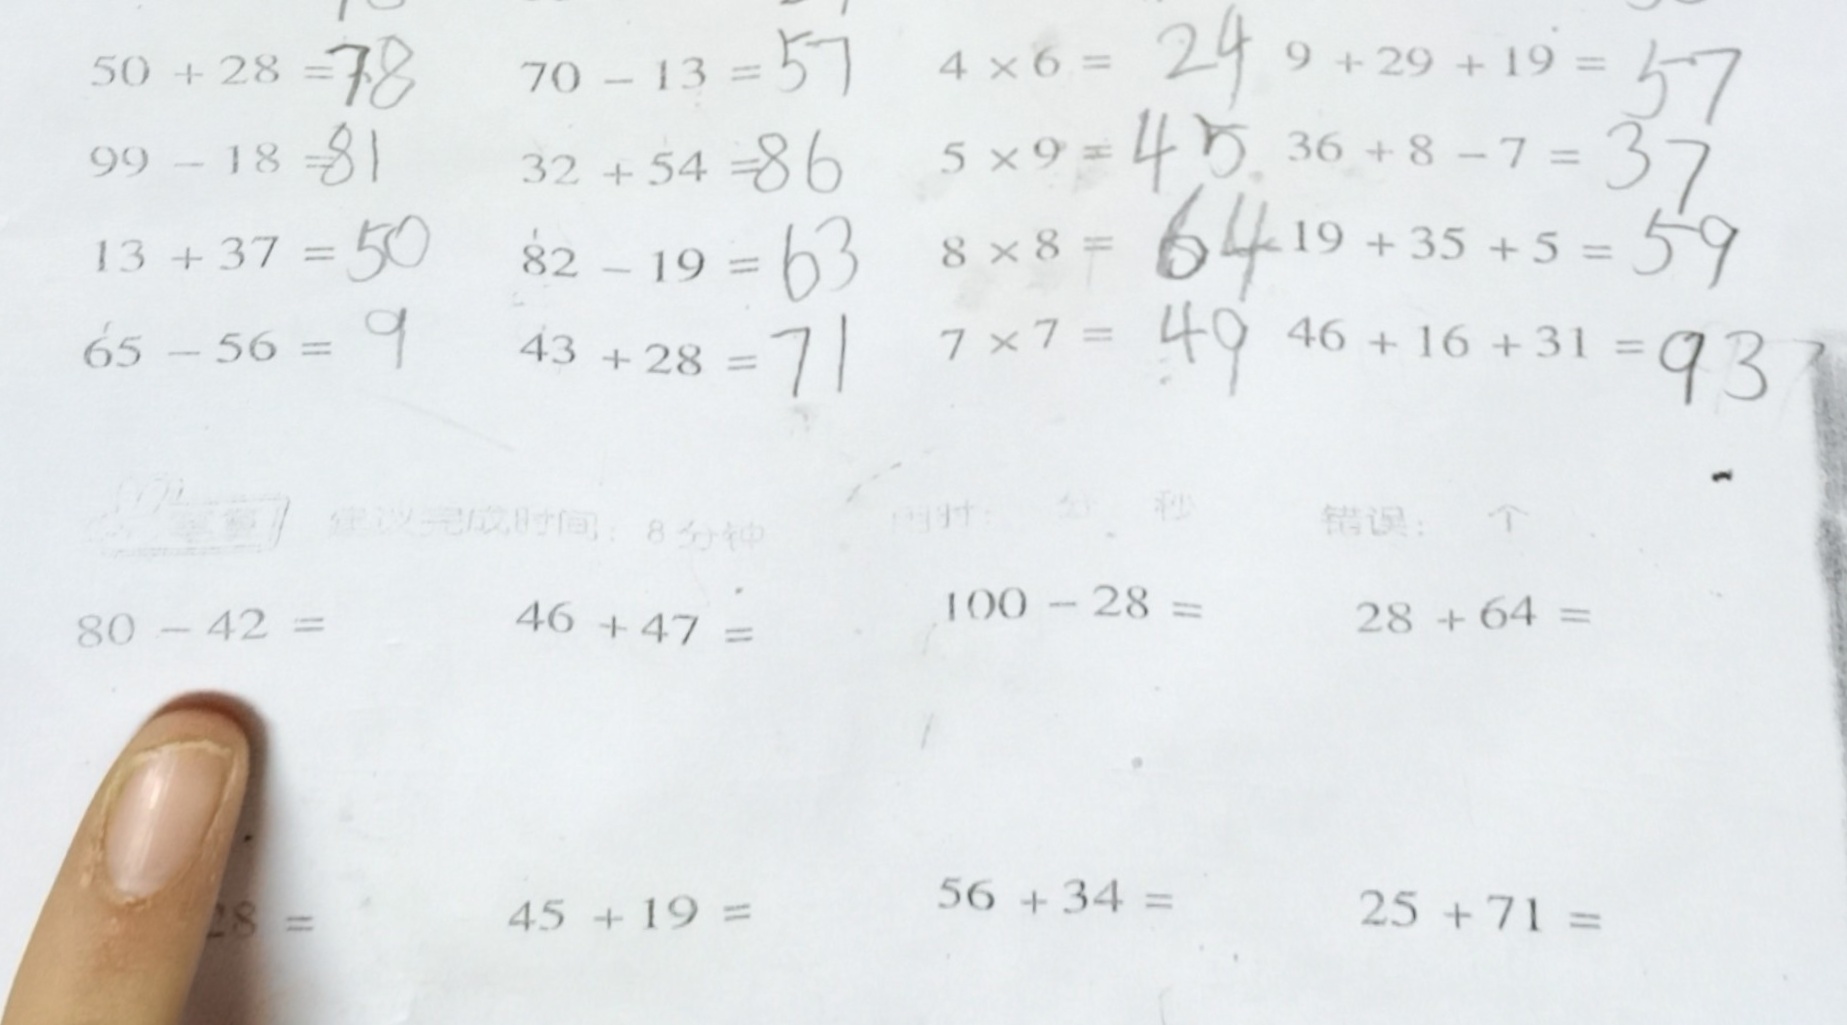 50 + 28 = 78 70 - 13 = 57 4 × 6 = 24 9 + 29 + 19 = 57
99 - 18 = 81 32 + 54 = 86 5 × 9 = 45 36 + 8 - 7 = 37
13 + 37 = 50 82 - 19 = 63 8 × 8 = 64 19 + 35 + 5 = 59
65 - 56 = 9 43 + 28 = 71 7 × 7 = 49 46 + 16 + 31 = 93
建议完成时间：8分钟 用时： 分 秒 错误： 个
80 - 42 = 46 + 47 = 100 - 28 = 28 + 64 =
28 = 45 + 19 = 56 + 34 = 25 + 71 =